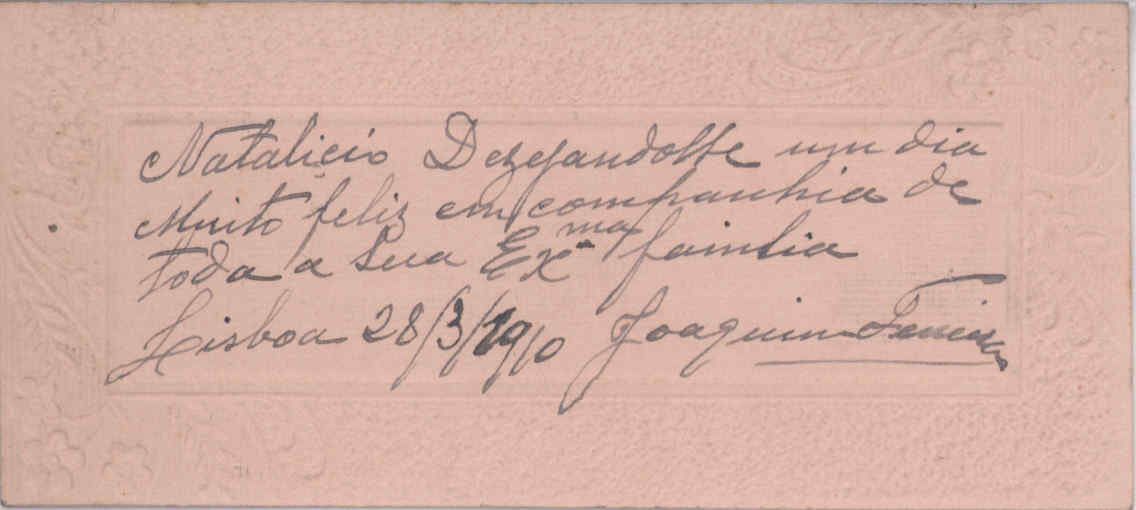 Natalicio Dezejandolhe um dia
Muito feliz em companhia de
toda a Sua Exma familia
Lisboa 28/3/1910 Joaquim Ferreira